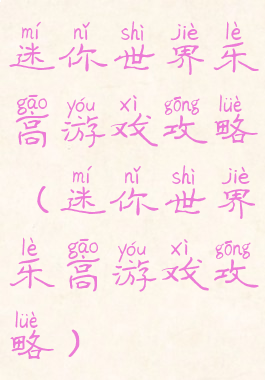 mí nǐ shì jiè lè
迷你世界乐
gāo yóu xì gōng lüè
高游戏攻略
mí nǐ shì jiè
（迷你世界
lè gāo yóu xì gōng
乐高游戏攻
lüè
略）